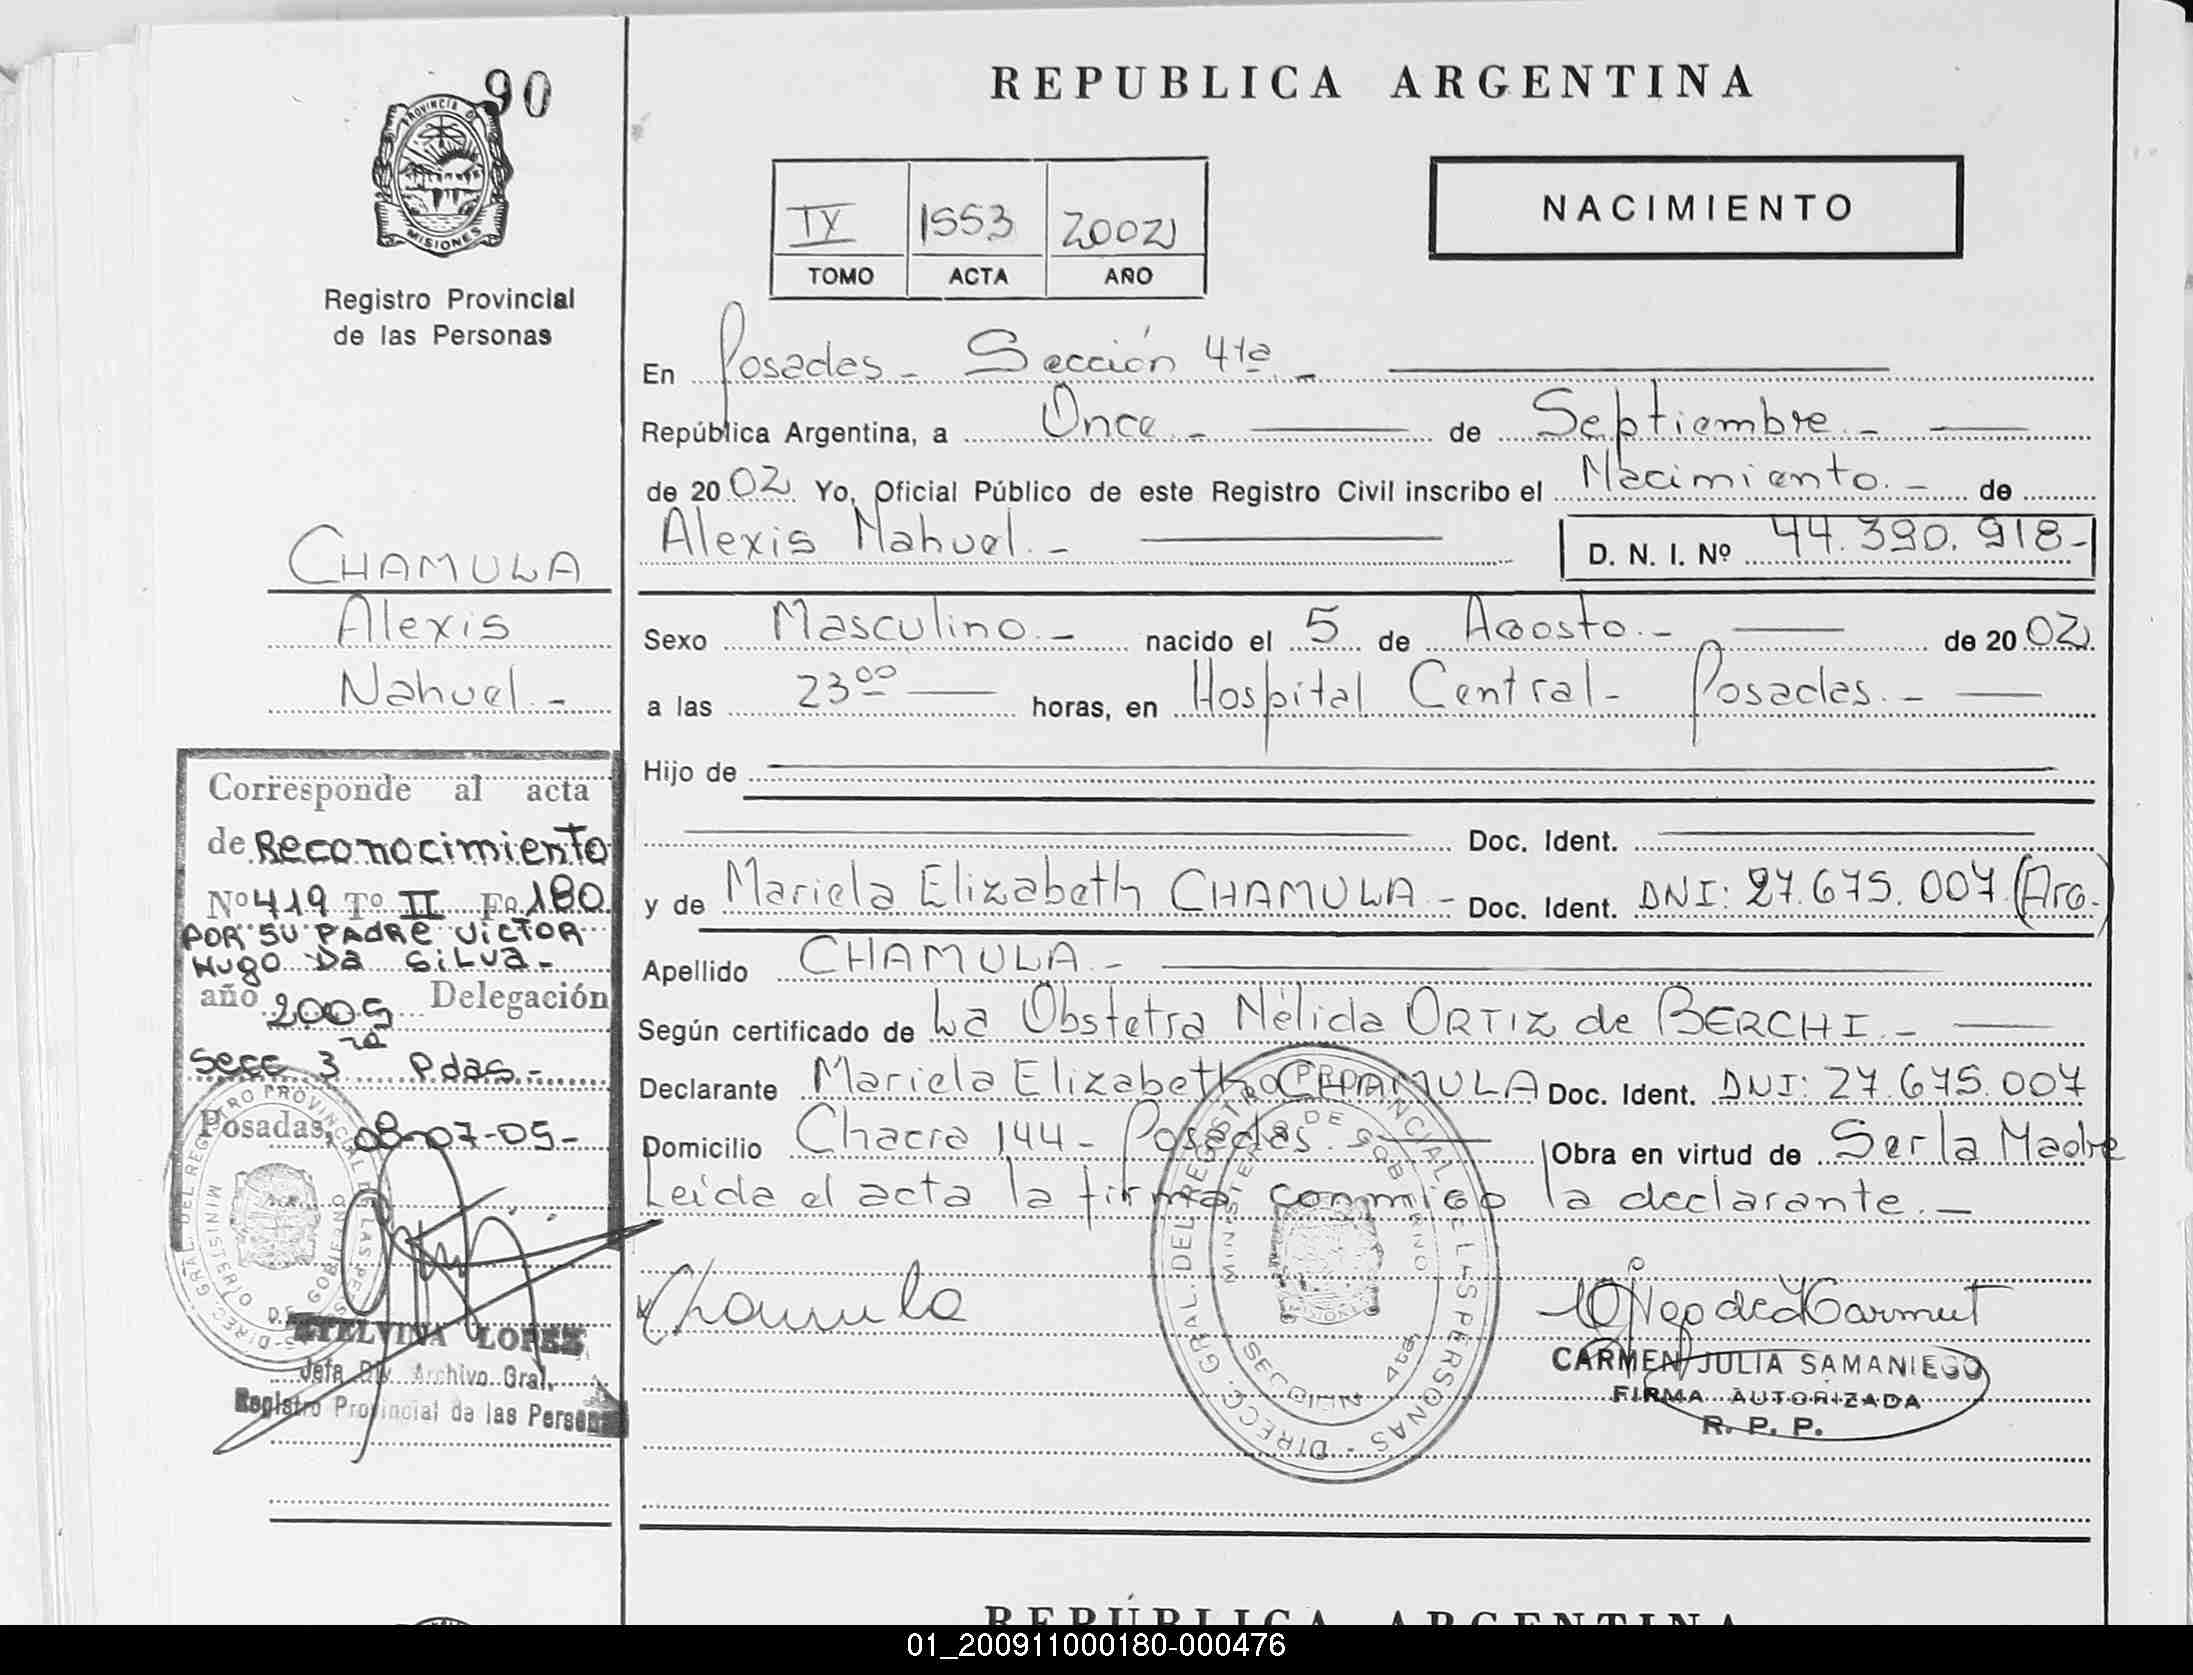 90
PROVINCIA DE
MISIONES
Registro Provincial
de las Personas
REPUBLICA ARGENTINA
NACIMIENTO
IV 1553 2002
TOMO ACTA AÑO
En Posadas - Sección 4ta. -
República Argentina, a Once - de Septiembre. -
de 2002 Yo, Oficial Público de este Registro Civil inscribo el Nacimiento. - de
Alexis Nahuel. - D. N. I. Nº 44.390.918-
CHAMULA
Alexis
Nahuel. -
Sexo Masculino. - nacido el 5 de Agosto. - de 2002
a las 23 00 horas, en Hospital Central - Posadas. -
Hijo de
Doc. Ident.
y de Mariela Elizabeth CHAMULA - Doc. Ident. DNI: 27.675.007 (Arg.)
Apellido CHAMULA. -
Según certificado de La Obstetra Nélida ORTIZ de BERCHI. -
Declarante Mariela Elizabeth CHAMULA Doc. Ident. DNI: 27.675.007
Domicilio Chacra 144 - Posadas. Obra en virtud de Ser la Madre
Leída el acta la firma conmigo la declarante. -
Chamula
CARMEN JULIA SAMANIEGO
FIRMA AUTORIZADA
R. P. P.
DIRECC. GRAL. DEL REGISTRO PROVINCIAL DE LAS PERSONAS
MINISTERIO DE GOBIERNO
SECCION 4ta
Corresponde al acta
de Reconocimiento
Nº 419 Tº II Fº 180
POR SU PADRE VICTOR
HUGO DA SILVA -
año 2005 Delegación
Secc 3ra Pdas -
Posadas, 08-07-05-
DIRECC. GRAL. DEL REGISTRO PROVINCIAL DE LAS PERSONAS
MINISTERIO DE GOBIERNO
ETELVINA LOPEZ
Jefa Div. Archivo Gral.
Registro Provincial de las Personas
REPÚBLICA ARGENTINA
01_200911000180-000476